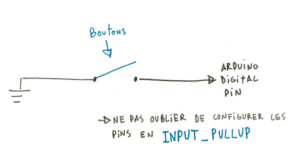 Boutons
ARDUINO
DIGITAL
PIN
→ NE PAS OUBLIER DE CONFIGURER LES
PINS EN INPUT_PULLUP